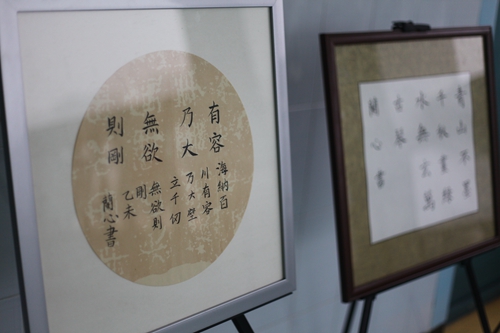 有容
乃大
無欲
則剛
海納百
川有容
乃大壁
立千仞
無欲則
剛
乙未
蘭心書
青山不墨
千秋畫綠
水無弦萬
古琴
蘭心書